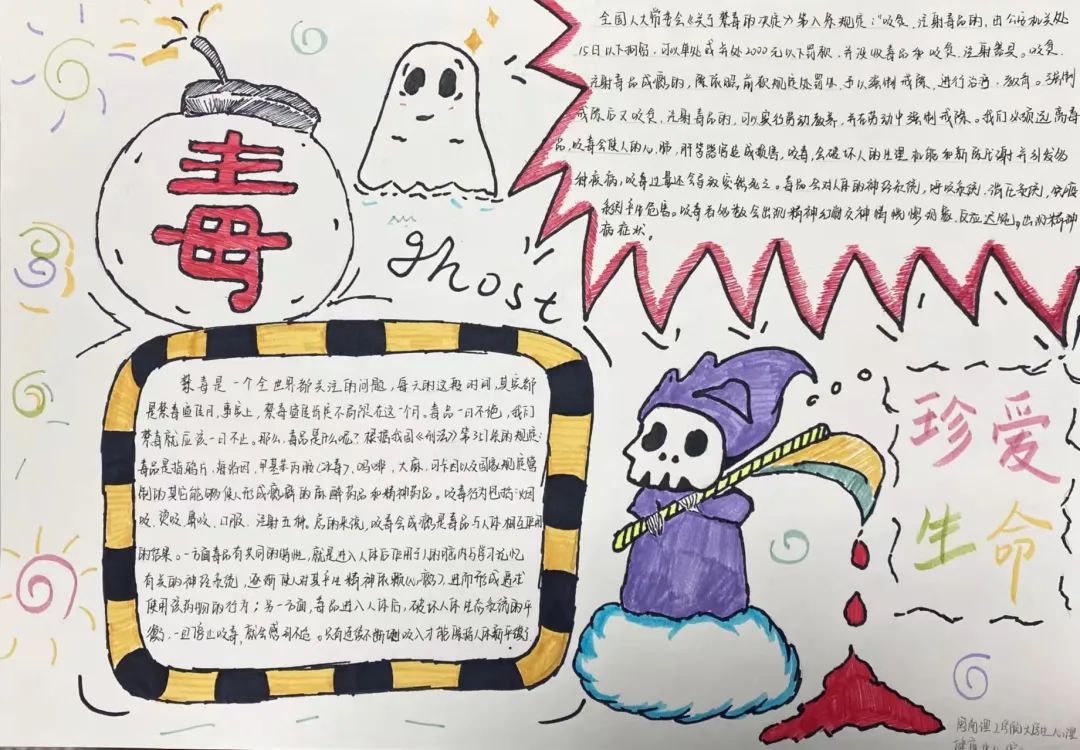 毒
ghost
全国人大常委会《关于禁毒的决定》第八条规定："吸食、注射毒品的，由公安机关处
15日以下拘留，可以单处或并处2000元以下罚款，并没收毒品和吸食、注射器具。吸食、
注射毒品成瘾的，除依照前款规定处罚外，予以强制戒除，进行治疗、教育。强制
戒除后又吸食、注射毒品的，可以实行劳动教养，并在劳动中强制戒除。我们必须远离毒
品，吸毒会使人的心、肺、肝等器官造成损害，吸毒，会破坏人的生理机能和新陈代谢并引发多
种疾病，吸毒过量还会导致突然死亡。毒品会对人体的神经系统，呼吸系统，消化系统，免疫
系统产生危害。吸毒者多数会出现精神幻觉精神恍惚现象，反应迟钝。出现精神
病症状。
禁毒是一个全世界都关注的问题，每天的这段时间，其实都
是禁毒宣传月，事实上，禁毒宣传当然不局限在这一个月，毒品一日不绝，我们
禁毒就应该一日不止。那么，毒品是什么呢？根据我国《刑法》第357条的规定：
毒品是指鸦片，海洛因，甲基苯丙胺（冰毒），吗啡，大麻，可卡因以及国家规定管
制的其它能够使人形成瘾癖的麻醉药品和精神药品。吸毒行为包括：烟
吸、烫吸、鼻吸、口服、注射五种。总的来说，吸毒会成瘾是毒品与人体相互作用
的结果。一方面毒品有共同的特性，就是进入人体后作用于人的脑内与学习记忆
有关的神经系统，逐渐使人对其产生精神依赖（心瘾），进而形成再求
使用该药物的行为；另一方面，毒品进入人体后，破坏人体生存系统的平
衡，一旦停止吸毒，就会感到不适。只有连续不断地吸入才能保持人体新平衡
珍爱
生命